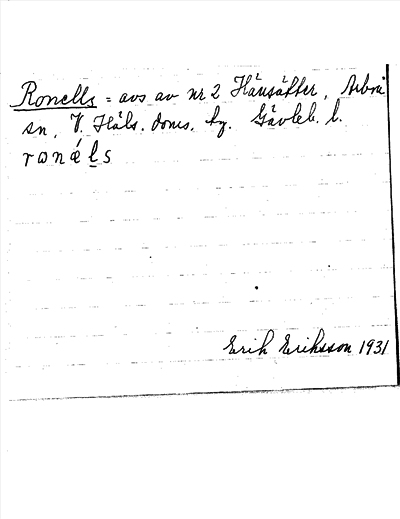 Ronells = avs av nr 2 Hänsätter, Arbrå
sn, V. Häls. doms. hg. Gävleb. l.
ronǽl̲s
Erik Eriksson 1931